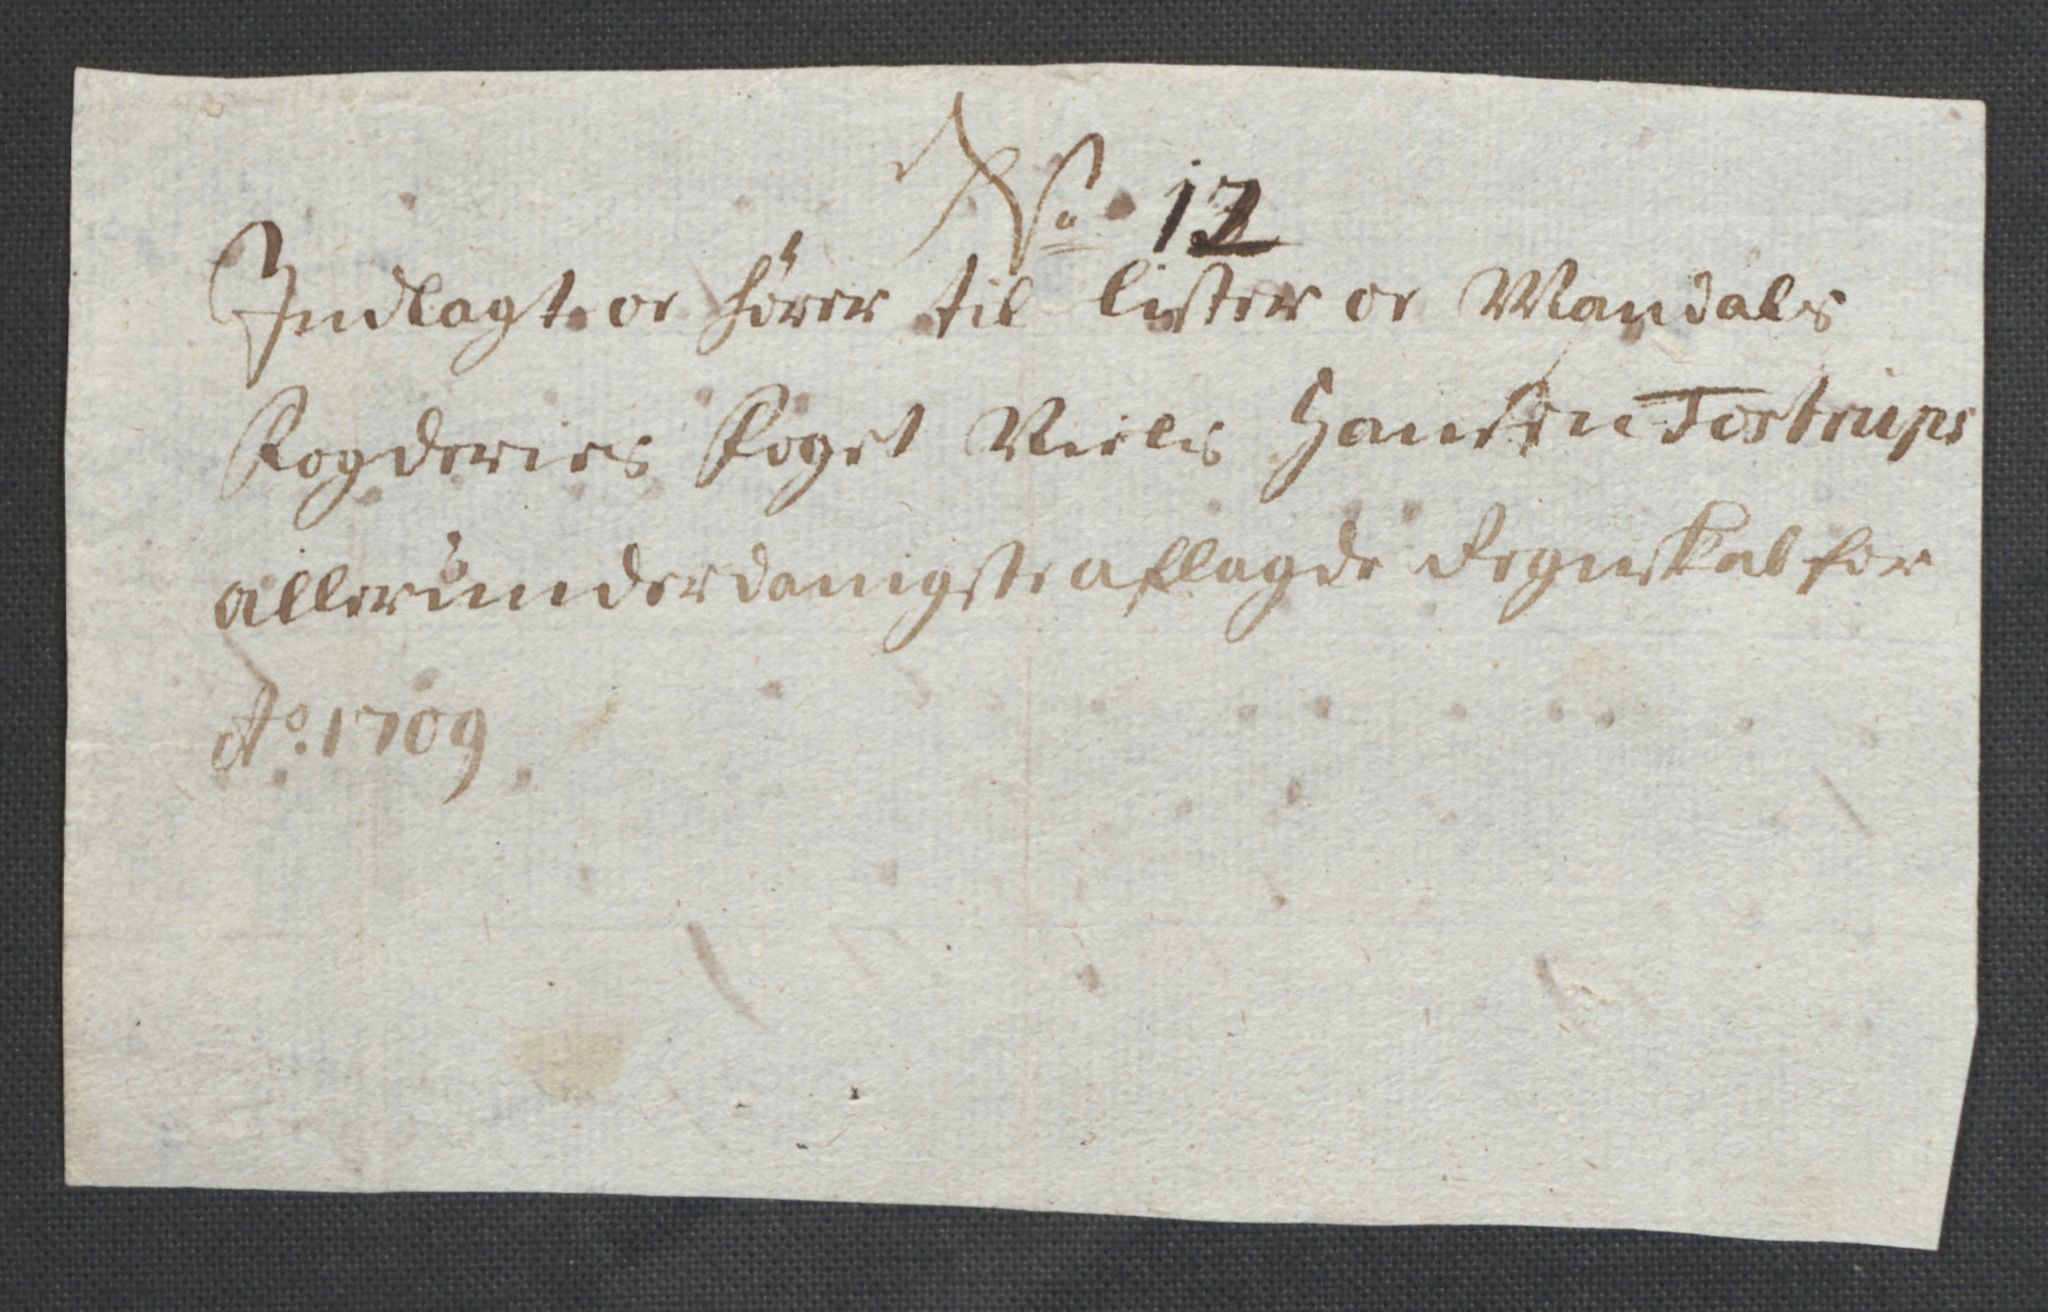 No 12
Indlagt oc hører til lister oc Mandals
Fogderies Foget Niels Hansen Tostrups
allerunderdanigste aflagde Regnskab for
Ao. 1709